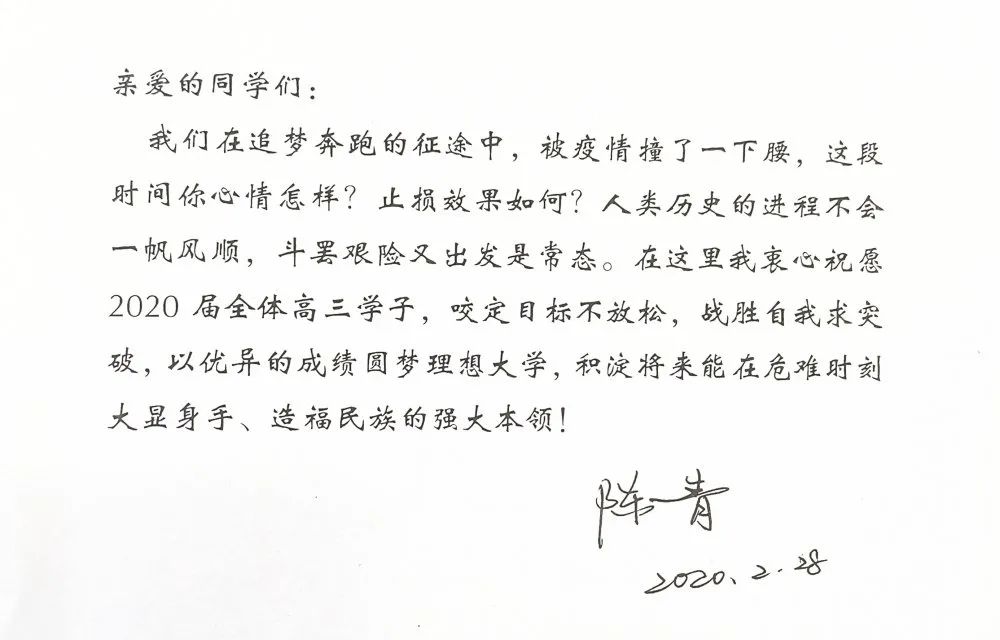 亲爱的同学们：
我们在追梦奔跑的征途中，被疫情撞了一下腰，这段
时间你心情怎样？止损效果如何？人类历史的进程不会
一帆风顺，斗罢艰险又出发是常态。在这里我衷心祝愿
2020 届全体高三学子，咬定目标不放松，战胜自我求突
破，以优异的成绩圆梦理想大学，积淀将来能在危难时刻
大显身手、造福民族的强大本领！
陈青
2020.2.28